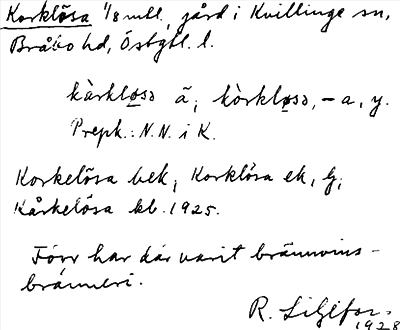 Korklösa 1/8 mtl., gård i Kvillinge sn,
Bråbo hd, Östgtl. l.
kàrkløsə ä; kòrkløsə, – a, y.
Prepk.: N.N. i K.
Korkelösa bek, Korklösa ek, G;
Kårkelösa kb. 1925.
Förr har där varit brännvins-
bränneri.
R.
1928